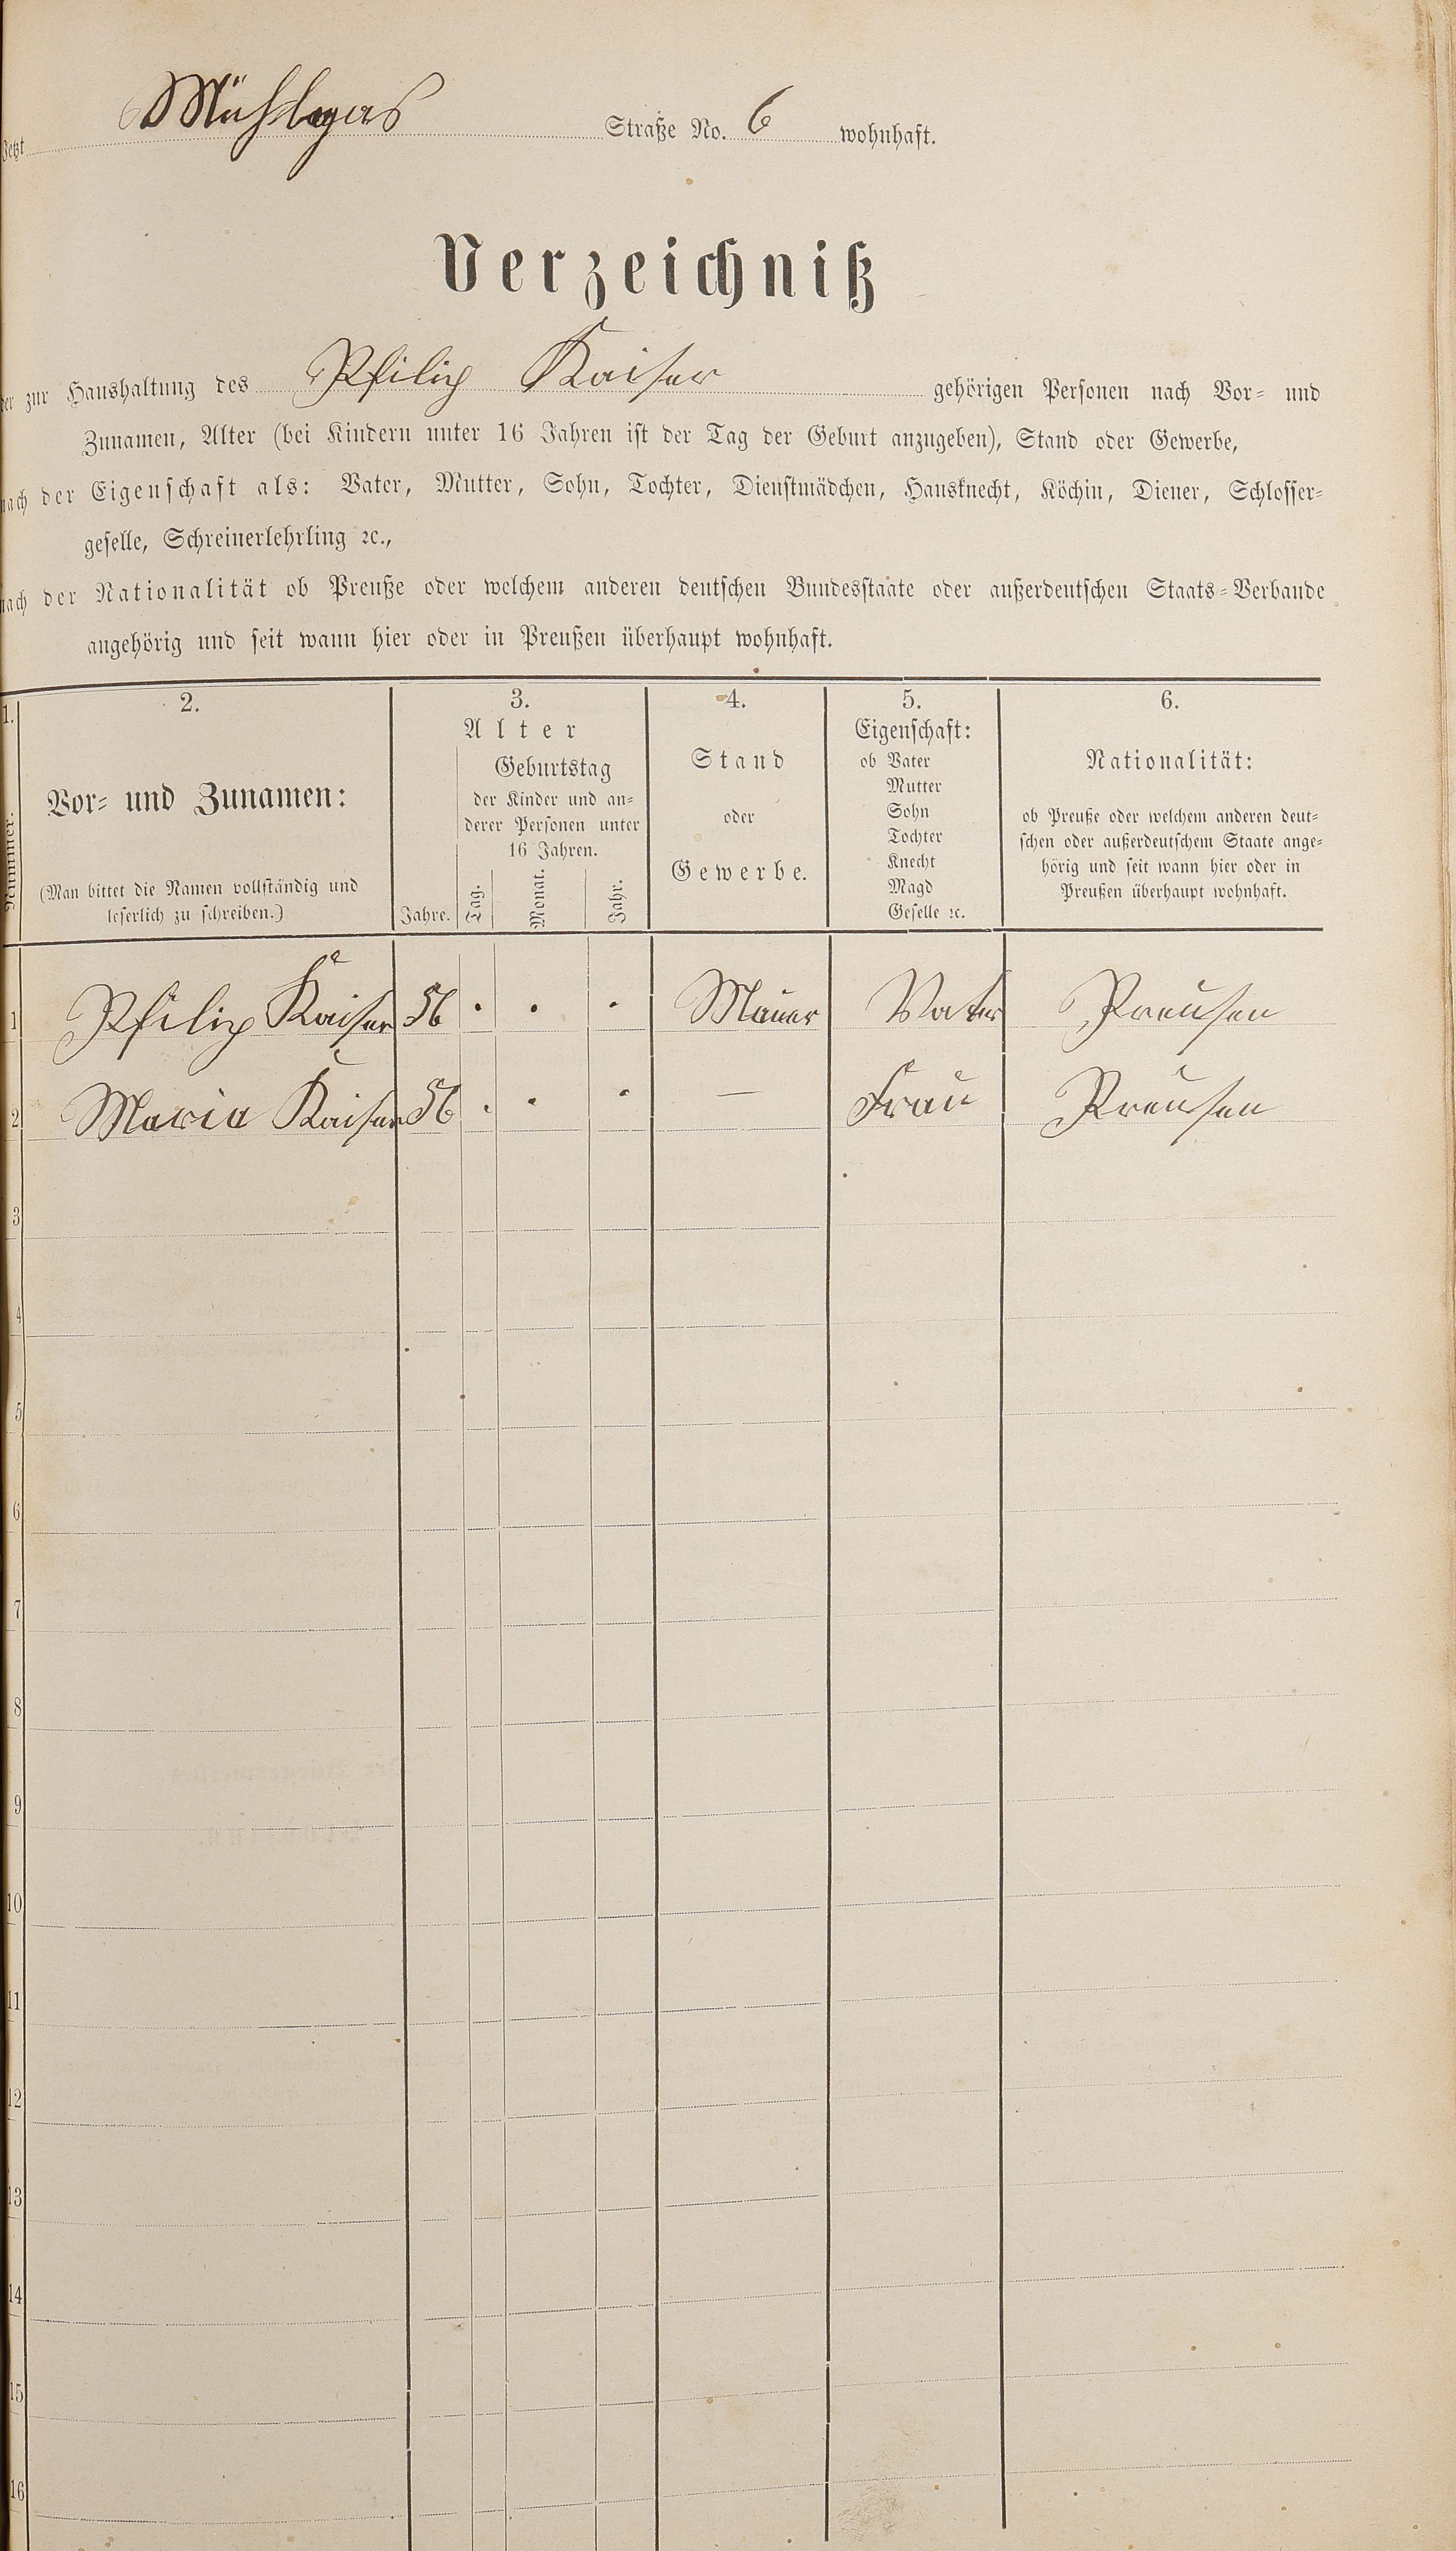 Jetzt Mühlgas Straße No. 6 wohnhaft.
Verzeichniß
der zur Haushaltung des Philip Kaiser gehörigen Personen nach Vor- und
Zunamen, Alter (bei Kindern unter 16 Jahren ist der Tag der Geburt anzugeben), Stand oder Gewerbe,
nach der Eigenschaft als: Vater, Mutter, Sohn, Tochter, Dienstmädchen, Hausknecht, Köchin, Diener, Schlosser-
geselle, Schreinerlehrling ꝛc.,
nach der Nationalität ob Preuße oder welchem anderen deutschen Bundesstaate oder außerdeutschen Staats-Verbande
angehörig und seit wann hier oder in Preußen überhaupt wohnhaft.
1.
Nummer.
2.
Vor- und Zunamen:
(Man bittet die Namen vollständig und
leserlich zu schreiben.)
3.
Alter
Jahre.
Geburtstag
der Kinder und an-
derer Personen unter
16 Jahren.
Tag.
Monat.
Jahr.
4.
Stand
oder
Gewerbe.
5.
Eigenschaft:
ob Vater
Mutter
Sohn
Tochter
Knecht
Magd
Geselle ꝛc.
6.
Nationalität:
ob Preuße oder welchem anderen deut-
schen oder außerdeutschem Staate ange-
hörig und seit wann hier oder in
Preußen überhaupt wohnhaft.
1 Philip Kaiser 56 . . . Mauer Vater Preusen
2 Maria Kaiser 56 . . . — Frau Preusen
3
4
5
6
7
8
9
10
11
12
13
14
15
16